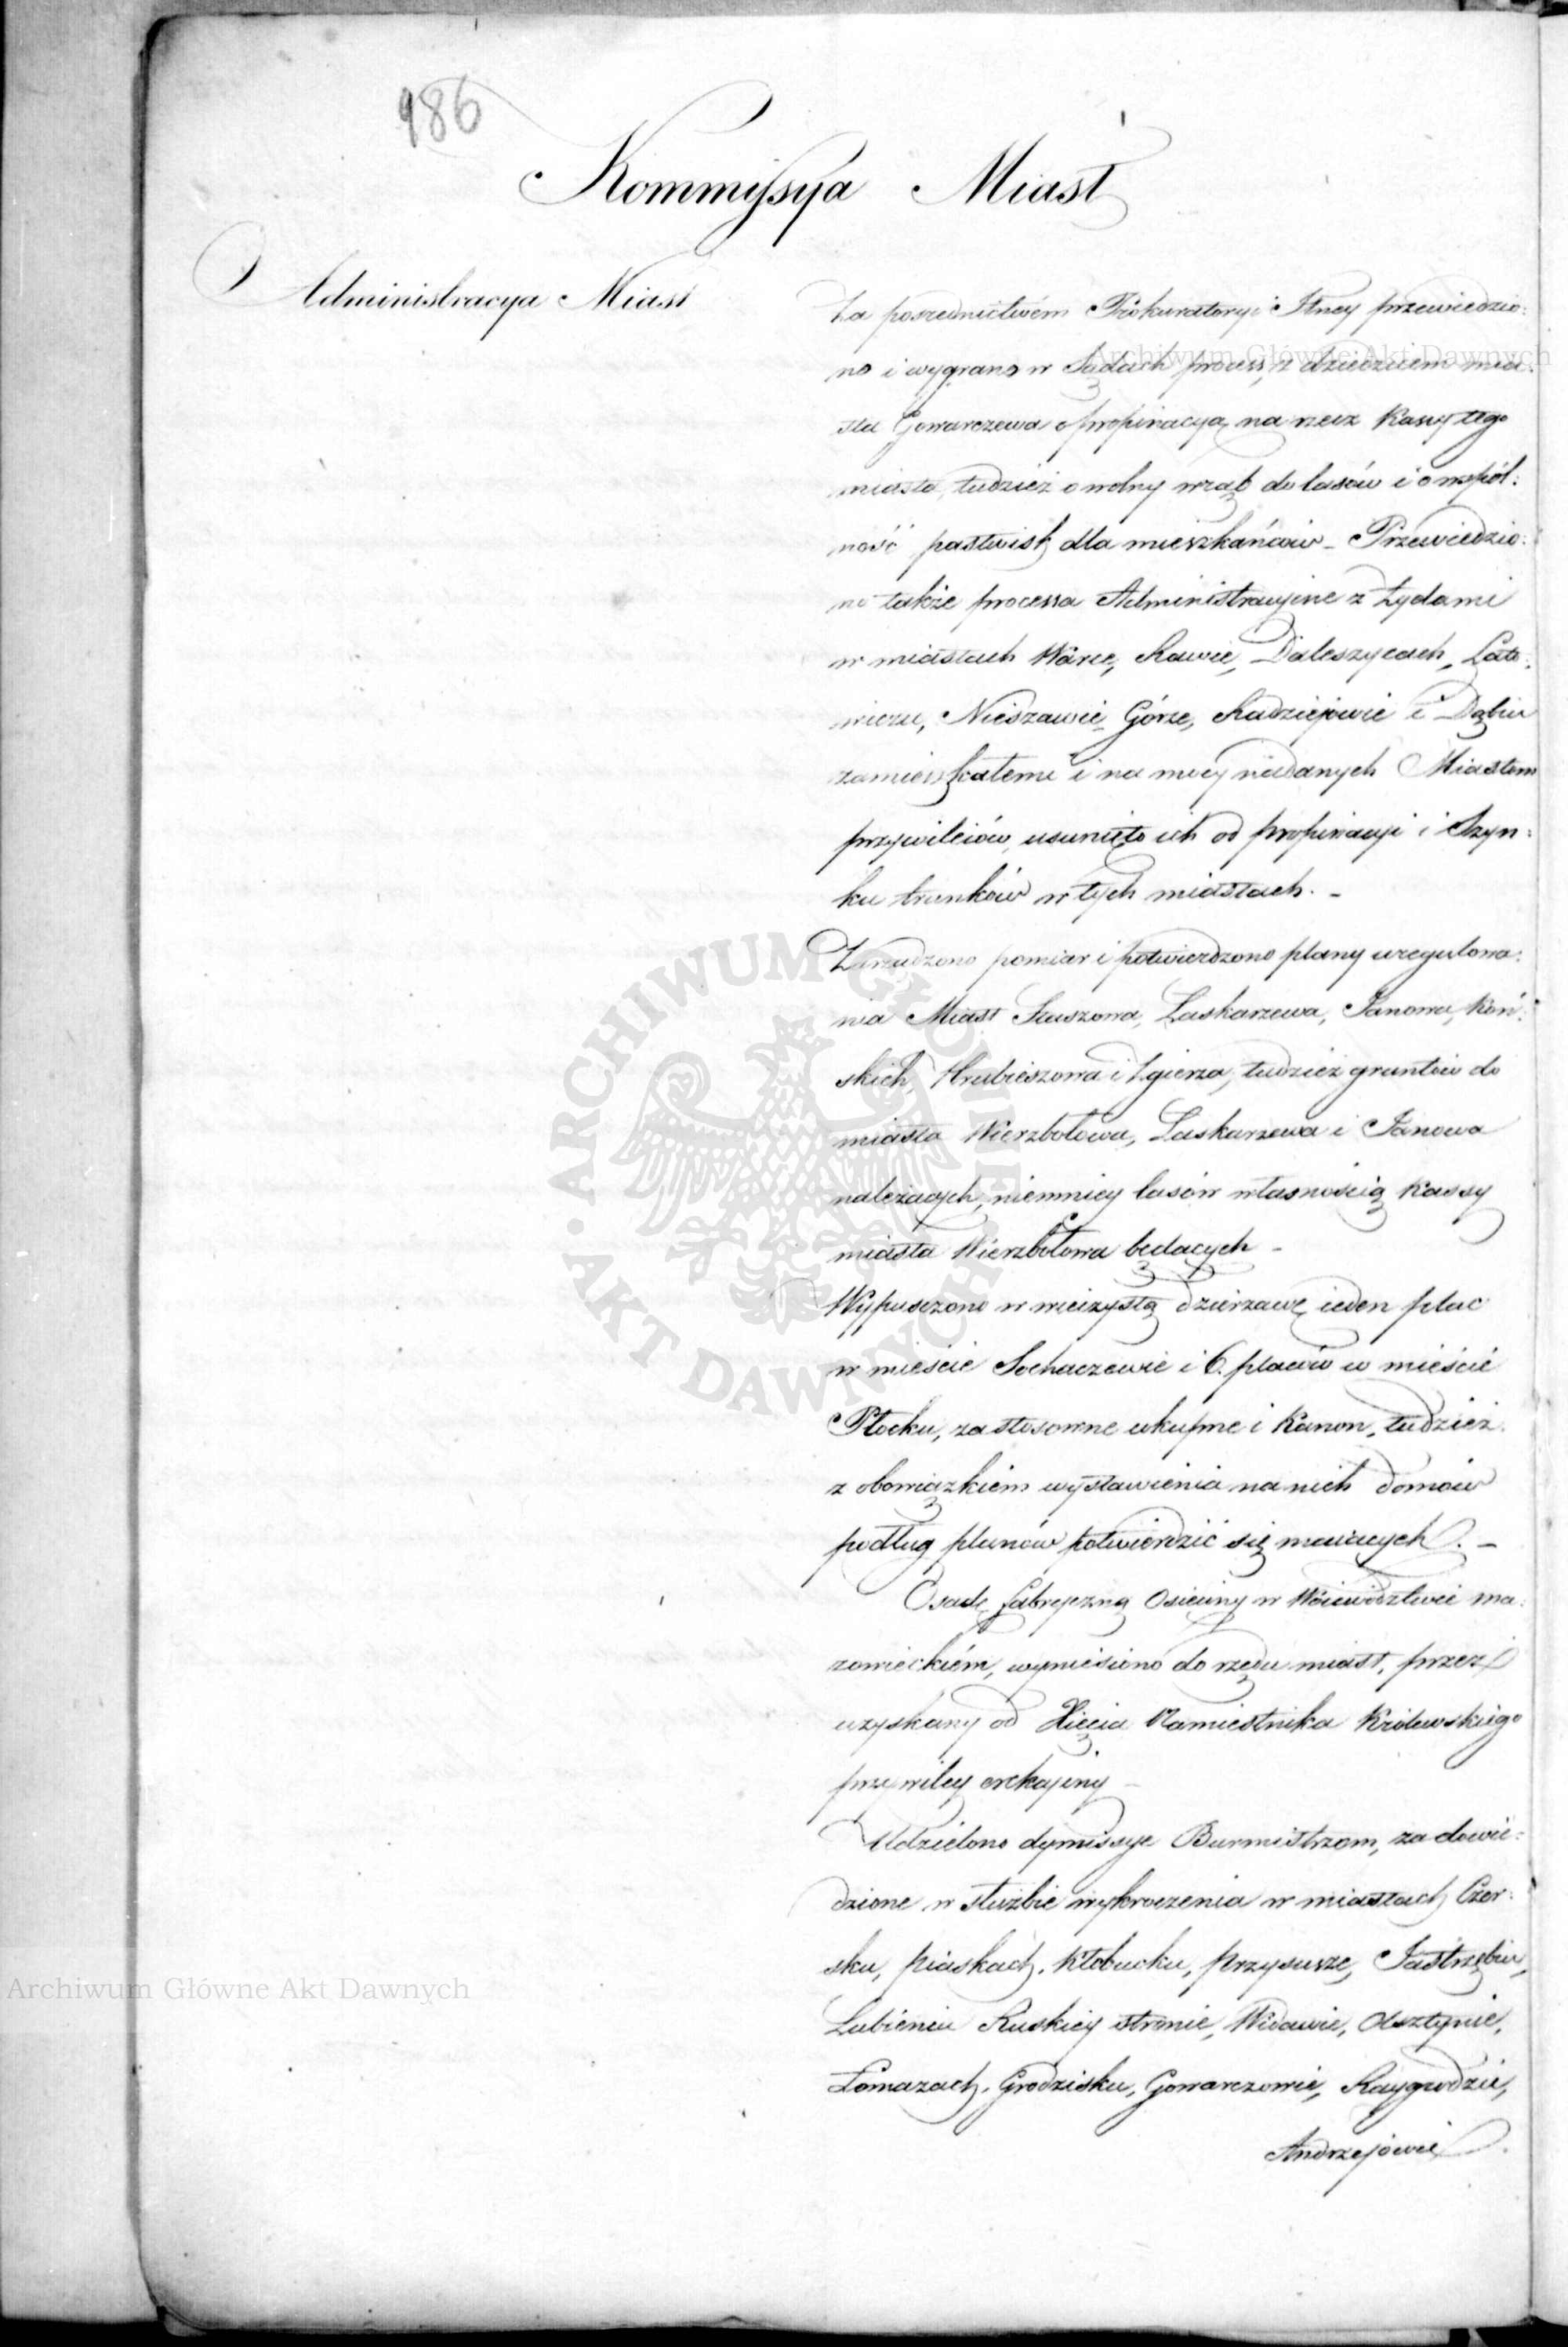 186
Kommissya Miast
Administracya Miast
Za posrednictwem Prokuratoryi Jlney przewiedzio:
no i wygrano w Sądach process z dziedzicem mia:
sta Gowarczewa o propinacyą na rzecz Kassy tego
miasta, tudzież o wolny wrąb do lasów i o wspól:
ność pastwisk dla mieszkańców – Przewiedzio:
no także processa Administracyine z Żydami
w miastach Warce, Rawie, Daleszycach, Lato:
wiczu, Nieszawie, Górze, Radziejowie i Dąbiu
zamieszkałemi i na mocy nadanych Miastom
przywileiów, usunięto ich od propinacyi i Szyn:
ku trunków w tych miastach. –
Zarządzono pomiar i potwierdzono plany uregulowa:
nia Miast Łaskarzewa, Janowa, Koń:
skich, Hrubieszowa i Zgierza, tudzież gruntów do
miasta Wierzbołowa, Łaskarzewa i Janowa
należących, niemniey lasów własnością Kassy
miasta Wierzbołowa będących –
Wypuszczono w wieczystą dzierzawę ieden plac
w mieście Sochaczewie i 6. placów w mieście
Płocku, za stosowne wkupne i Kanon, tudzież
z obowiązkiem wystawienia na nich domów
podług planów potwierdzić się maiących. –
Osadę fabryczną Osięciny w Woiewództwie ma:
zowieckiém, wyniesiono do rzędu miast, przez
uzyskany od Xięcia Namiestnika Królewskiego
przywiley erekcyiny –
Udzielono dymissye Burmistrzom, za dowie:
dzione w służbie wykroczenia w miastach Czer:
sku, Piaskach, Kłobucku, Przysusze, Jastrzębiu,
Lubieniu Ruskiey stronie, Widawie, Olsztynie,
Łomazach, Grodzisku, Gowarczowie, Raygrodzie,
Andrzejowie.
Archiwum Główne Akt Dawnych
Archiwum Główne Akt Dawnych
ARCHIWUM GŁÓWNE · AKT DAWNYCH ·